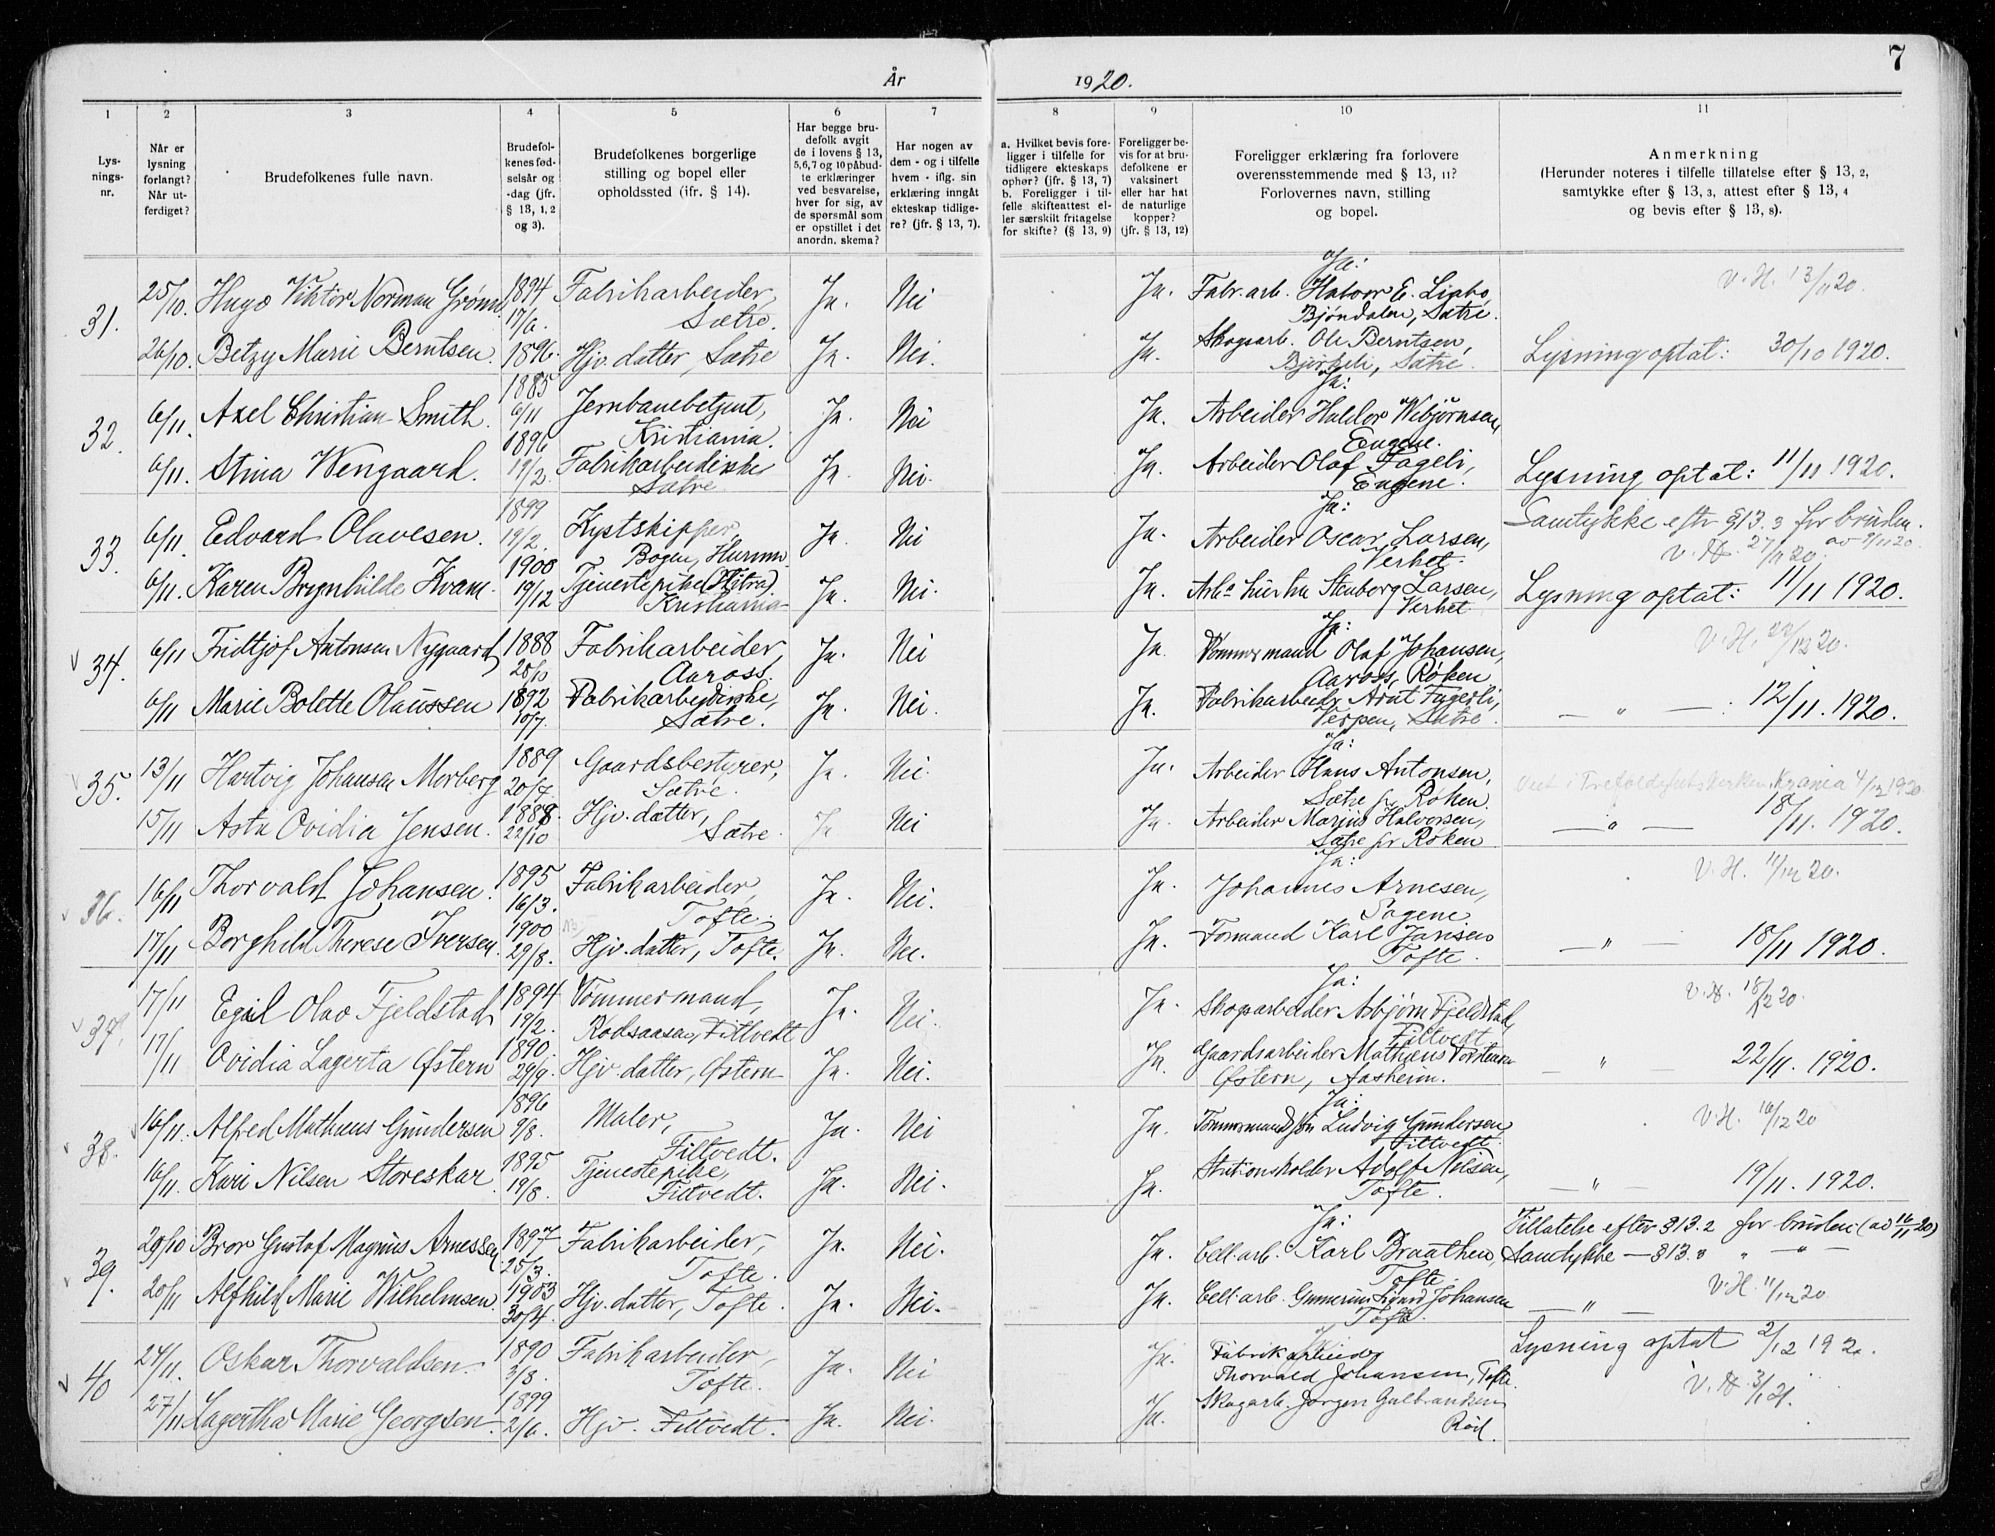 7
År 1920.
1 2 3 4 5 6 7 8 9 10 11
Lys-
nings-
nr.
Når er
lysning
forlangt?
Når ut-
ferdiget?
Brudefolkenes fulle navn.
Brudefol-
kenes fød-
selsår og
-dag (jfr.
§ 13, 1, 2
og 3).
Brudefolkenes borgerlige
stilling og bopel eller
opholdssted (ifr. § 14).
Har begge bru-
defolk avgit
de i lovens § 13,
5,6,7 og 10 påbud-
te erklæringer
ved besvarelse,
hver for sig, av
de spørsmål som
er opstillet i det
anordn. skema?
Har nogen av
dem - og i tilfelle
hvem - iflg. sin
erklæring inngått
ekteskap tidlige-
re? (jfr. § 13, 7).
a. Hvilket bevis fore-
ligger i tilfelle for
tidligere ekteskaps
ophør? (jfr. § 13, 7)
b. Foreligger i til-
felle skifteattest el-
ler særskilt fritagelse
for skifte? (§ 13, 9)
Foreligger be-
vis for at bru-
defolkene er
vaksinert
eller har hat
de naturlige
kopper?
(jfr. § 13, 12)
Foreligger erklæring fra forlovere
overensstemmende med § 13, 11?
Forlovernes navn, stilling
og bopel.
Anmerkning
(Herunder noteres i tilfelle tillatelse efter § 13, 2,
samtykke efter § 13, 3, attest efter § 13, 4
og bevis efter § 13, 8).
31. 25/10 Hugo Viktor Norman Grønn 1894 17/6. Fabrikarbeider, Sætre. Ja. Nei Ja. Ja: Fabr.arb. Halvor E. Ligbo, Bjøndalen, Sætre. V.H. 13/11 20.
26/10. Betzy Marie Berntsen. 1896. Hjv. datter, Sætre Ja. Nei. Ja. Skogsarb. Ole Berntsen, Bjerkeli, Sætre. Lysning optat: 30/10 1920.
32. 6/11. Axel Christian Smith. 1885 6/11 Jernbanebetjent, Kristiania. Ja. Nei Ja. Ja: Arbeider Haldor Wibjørnsen, Engene.
6/11. Stina Wengaard. 1896 19/2. Fabrikarbeiderske Sætre Ja. Nei. Ja. Arbeider Olaf Fageli, Engene. Lysning optat: 11/11 1920.
33. 6/11. Edvard Olavesen. 1899 19/2. Kystskipper, Bogen, Hurum. Ja. Nei Ja. Ja: Arbeider Oscar Larsen, Verket. Samtykke eftr §13.3 for bruden. av 9/11 20. V.H. 27/11 20.
6/11. Karen Brynhilde Kvam. 1900 19/12 Tjenestepike (Hitra) Kristiania Ja. Nei. Ja. Larsen, Verket Lysning optat: 11/11 1920.
34. 6/11 Fridtjof Antonsen Nygaard 1888 Fabrikarbeider, Aaross. Ja. Nei Ja. Ja: Tømmermand Olaf Johansen, Aaross, Røken V.H. 20.
6/11 Marie Bolette Olaussen 1892 10/7. Fabrikarbeiderske, Sætre. Ja. Nei. Ja. Fabrikarbeidr Fagerli, Verpen, Sætre. — " — : 12/11. 1920.
35. 13/11 Hartvig Johansen Morberg 1889 20/7. Gaardsbestyrer, Sætre. Ja. Nei. Ja. Ja: Arbeider Hans Antonsen, Sætre pr Røken. Viet i Trefoldighetskirken, Krania 4/12 1920
15/11 Asta Ovidia Jensen. 1888. 22/10 Hjv. datter, Sætre Ja Nei Ja. Arbeider Marius Halvorsen, Sætre pr Røken — " — 18/11. 1920.
36. 16/11 Thorvald Johansen. 1895 16/3. Fabrikarbeider, Tofte. Ja. Nei. Ja. Ja: Johannes Arnesen, Sagene V.H. 11/12 20.
17/11 Borghild Therese Iversen 1900 29/8. Hjv. datter, Tofte. Ja. Nei. Ja. Formand Karl Jansen Tofte. — " — 18/11 1920.
37. 17/11 Egil Olav Fjeldstad 1894 19/2. Tømmermand, Kodsaasen, Filtvedt Ja. Nei. Ja. Ja: Skogsarbeider Asbjørn Fjeldstad, Filtvedt V.H. 18/12 20.
17/11 Ovidia Lagerta Østern 1890. 29/9. Hjv. datter, Østern Ja. Nei. Ja. Gaardsarbeider Mathæus Torstensen Østern, Aasheim. — " — 22/11. 1920.
38. 16/11. Alfred Mathæus Gundersen 1896 9/8. Maler, Filtvedt. Ja. Nei Ja. Ja: Tømmermand Ludvig Gundersen, Filtvedt. V.H. 16/12 20
16/11. Kari Nilsen Storeskar 1895 19/8. Tjenestepike, Filtvedt. Ja. Nei. Ja. Stationsholder Adolf Nilsen, Tofte. — " — 19/11. 1920.
39. 29/10 Bror Gustaf Magnus Arnessen 1897 25/3. Fabrikarbeider, Tofte. Ja. Nei. Ja. Ja: Cell.arb. Karl Braathen, Tofte. Tillatelse efter §13.2 for bruden (av 16/11 20) Samtykke — §13.3 " — " —
20/11 Alfhild Marie Wilhelmsen. 1903 30/4. Hjv. datter, Tofte. Ja. Nei. Ja. Cell.arb. Gunerius Sigurd Johansen Tofte. V.H. 11/12 20 — " —
40 24/11. Oskar Thorvaldsen. 1890 3/8. Fabrikarbeider, Tofte. Ja. Nei Ja. Ja Fabrikarbeider Thorvald Johansen, Tofte. Lysning optat 2/12 192.
27/11 Lagertha Marie Georgsen. 1899 2/6. Hjv. Filtvedt. Ja. Nei. Ja. Skogarb. Jørgen Gulbrandsen Rød. V.H. 3/1 21.